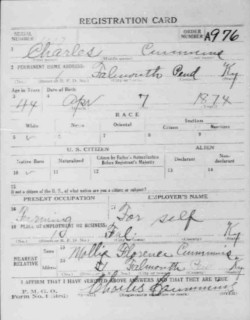 REGISTRATION CARD
SERIAL NUMBER
ORDER NUMBER A976
Charles Cummins
PERMANENT HOME ADDRESS:
Falmouth Pend Ky
Age in Years Date of Birth
44 Apr 7 1874
RACE
White Negro Oriental Indian
Citizen Noncitizen
U. S. CITIZEN ALIEN
Native Born Naturalized Citizen by Father's Naturalization Before Registrant's Majority Declarant Non-declarant
If not a citizen of the U. S., of what nation are you a citizen or subject?
PRESENT OCCUPATION EMPLOYER'S NAME
Farming For self
PLACE OF EMPLOYMENT OR BUSINESS:
Fal Ky
NEAREST RELATIVE
Mollie Florence Cummins
Falmouth Ky
I AFFIRM THAT I HAVE VERIFIED ABOVE ANSWERS AND THAT THEY ARE TRUE
P. M. G. O.
Form No. 1 (Red)
Charles Cummins